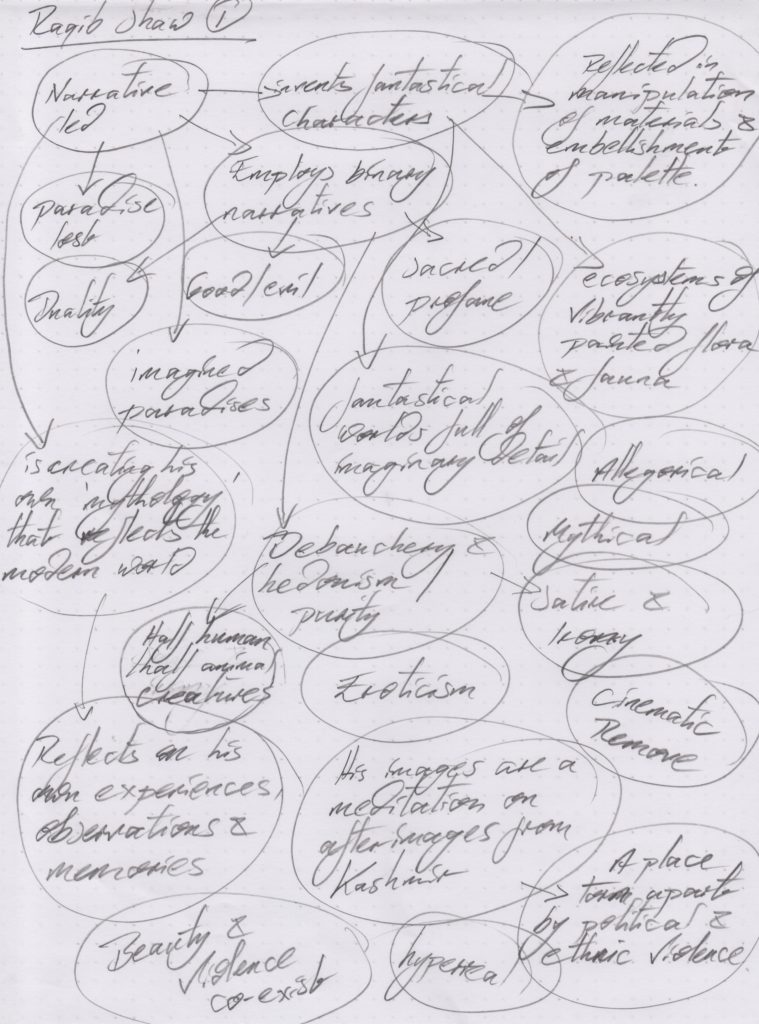 Raqib Shaw ①
Narrative
led
invents fantastical
characters
Reflected in
manipulation
of materials &
embellishments
of palette.
Employs binary
narratives
paradise
lost
Duality
Good/evil
Sacred/
profane
ecosystems of
vibrantly
painted flora
& fauna
imagined
paradises
fantastical
worlds full of
imaginary detail
is creating his
own 'mythology'
that reflects the
modern world
Allegorical
Mythical
Debauchery &
hedonism/
purity
Satire &
Irony
Half human
half animal
creatures
Eroticism
Cinematic
Remove
Reflects on his
own experiences,
observations &
memories
His images are a
meditation on
afterimages from
Kashmir
A place
torn apart
by political &
ethnic violence.
Beauty &
violence
co-exist
hyperreal